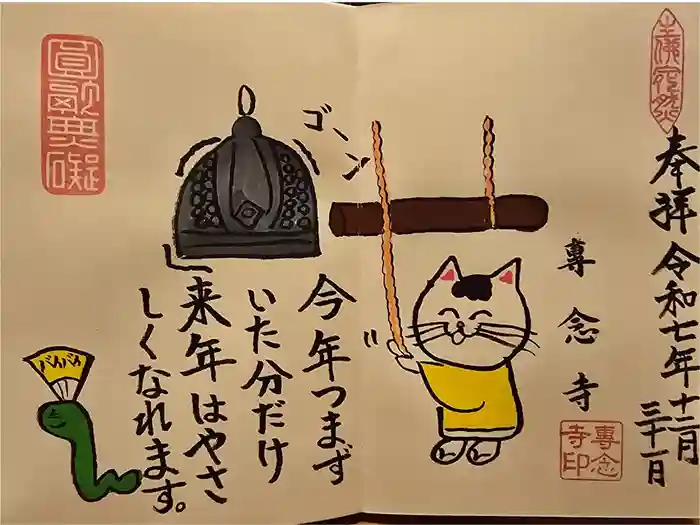 奉拝 令和七年十二月
三十一日
專念寺
專念
寺印
ゴーン
今年つまず
いた分だけ
来年はやさ
しくなれます。
圓融無礙
ばんばん